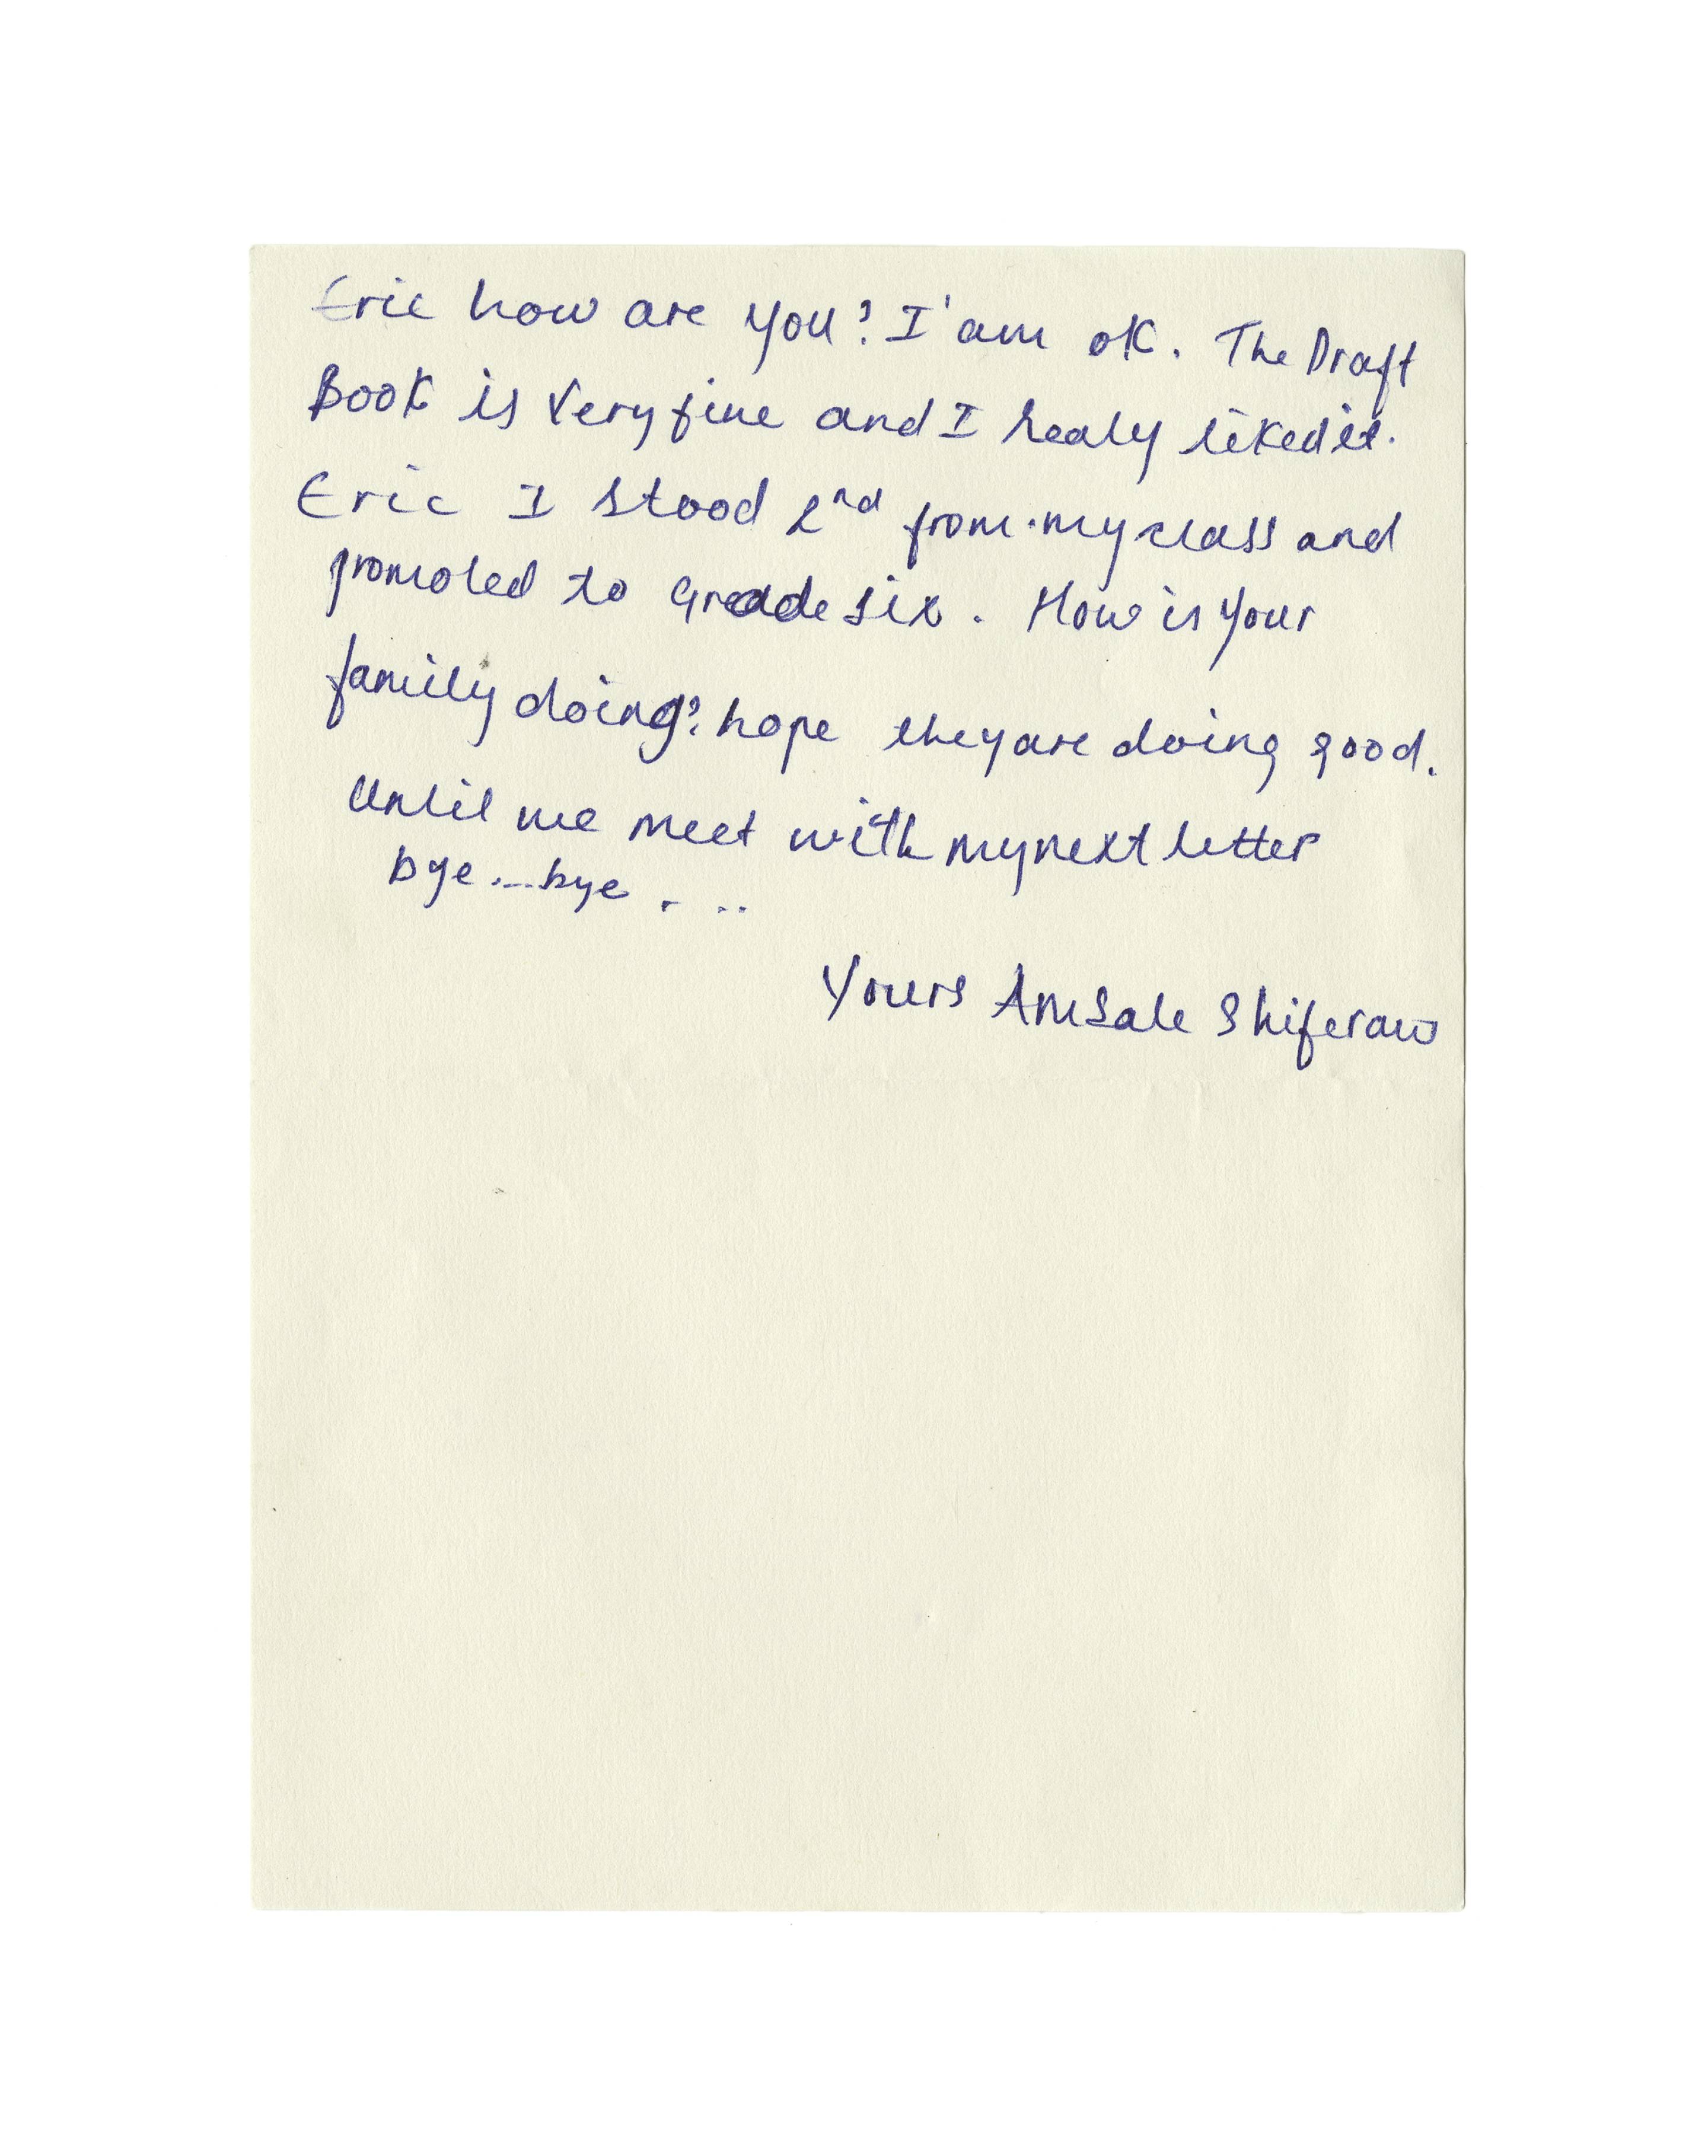 Eric how are you? I'am oK. The Draft
Book is Very fine and I realy liked it.
Eric I stood 2nd from my class and
promoted to Grade six. How is your
family doing? hope they are doing good.
Until we meet with my next letter
bye....bye . ..
Yours Amsale Shiferaw